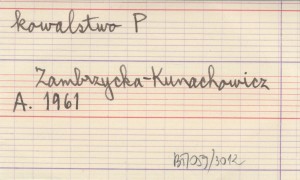 kowalstwo P
Zambrzycka-Kunachowicz
A. 1961
BT/059/3012